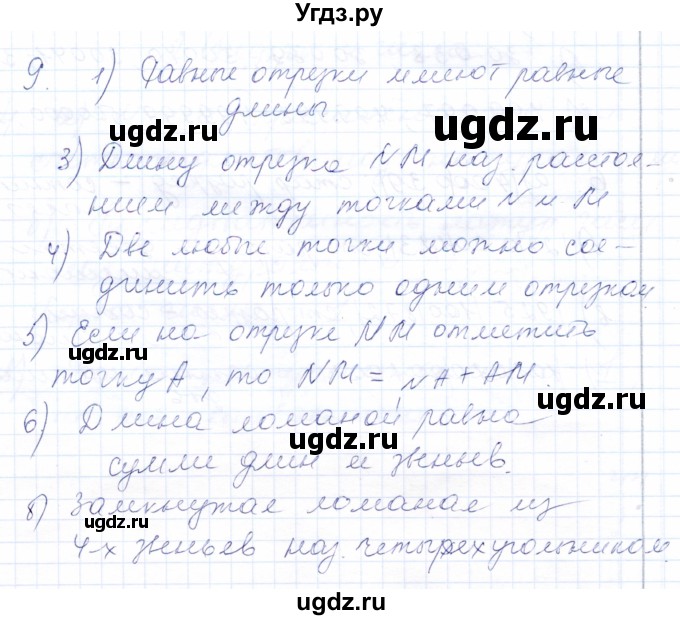 Угдз.ру
9. 1) Равные отрезки имеют равные
длины.
ugdz.ru
ugdz.ru
3) Длину отрезка NM наз. расстоя-
нием между точками N и M
ugdz.ru
ugdz.ru
4) Две любые точки можно сое-
динить только одним отрезком
ugdz.ru
5) Если на отрезке NM отметить
ugdz.ru
точку A, то NM = NA + AM.
ugdz.ru
6) Длина ломаной равна
ugdz.ru
сумме длин её звеньев.
8) Замкнутая ломаная из
ugdz.ru
4-х звеньев наз. четырехугольником.
ugdz.ru
ugdz.ru